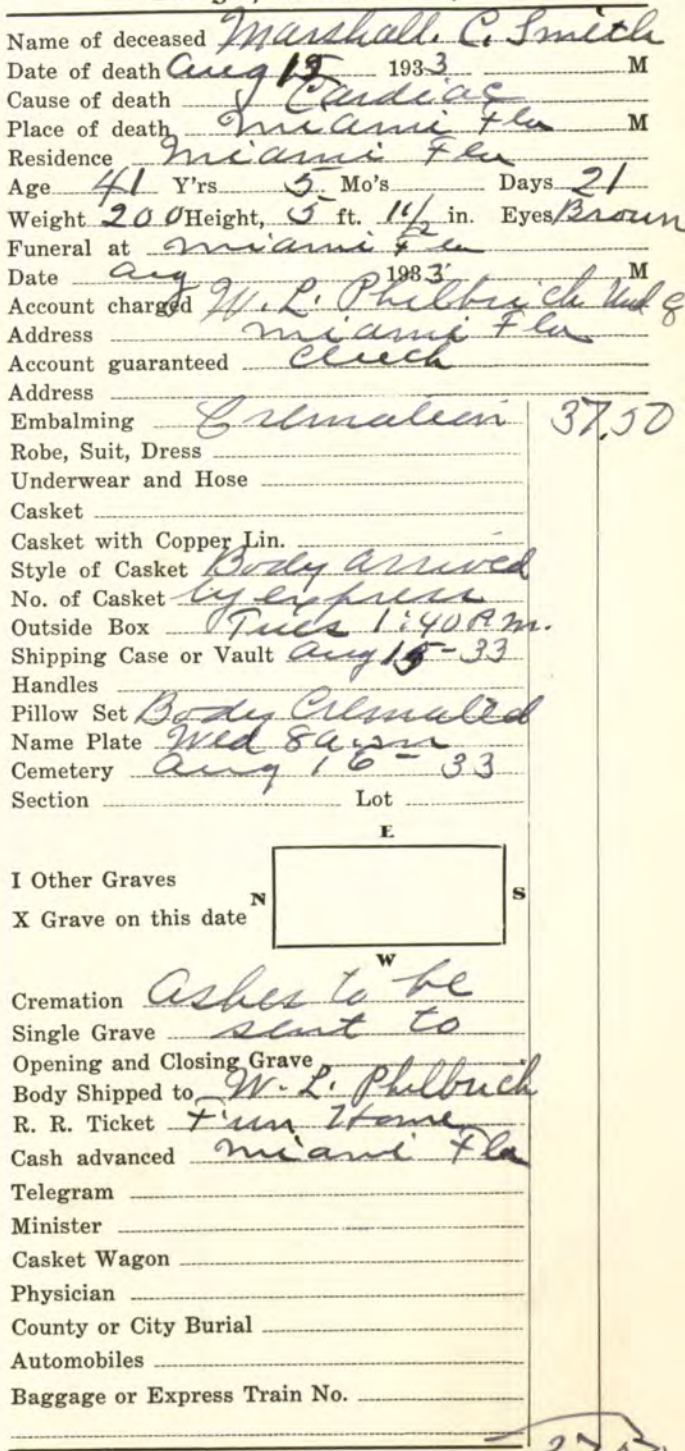 Name of deceased Marshall. C. Smith
Date of death Aug 1933 M
Cause of death Cardiac
Place of death Miami Fla M
Residence Miami Fla
Age 41 Y'rs 5 Mo's Days 21
Weight 200 Height, 5 ft. 11 1/2 in. Eyes Brown
Funeral at Miami Fla
Date Aug 1933 M
Account charged W. L. Philbrick
Address Miami Fla
Account guaranteed
Address
Embalming Cremation 37.50
Robe, Suit, Dress
Underwear and Hose
Casket
Casket with Copper Lin.
Style of Casket Body arrived
No. of Casket by express
Outside Box Tues 1:40 P.m.
Shipping Case or Vault Aug 15-33
Handles
Pillow Set Body Cremated
Name Plate Wed 8 a.m
Cemetery Aug 16-33
Section Lot
E
I Other Graves
N S
X Grave on this date
W
Cremation Ashes to be
Single Grave sent to
Opening and Closing Grave
Body Shipped to W. L. Philbrick
R. R. Ticket Fun Home
Cash advanced Miami Fla
Telegram
Minister
Casket Wagon
Physician
County or City Burial
Automobiles
Baggage or Express Train No.